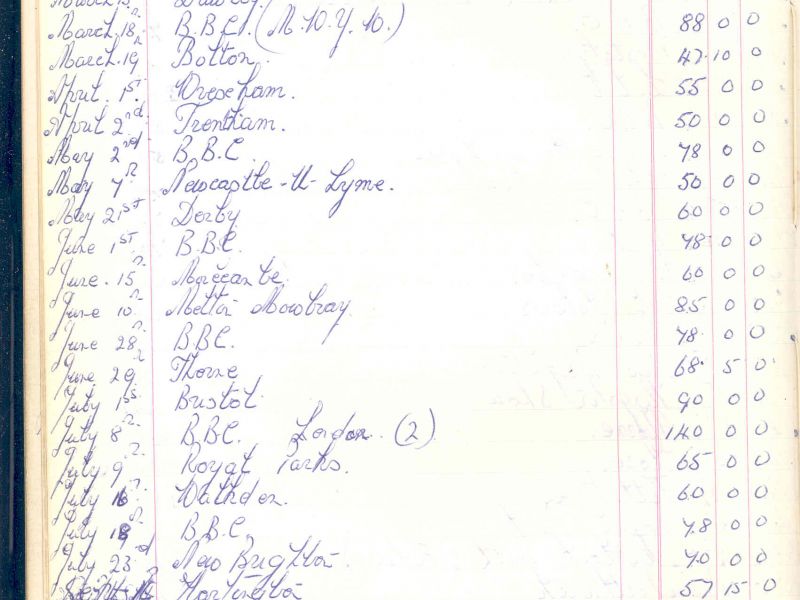 March 18th B.B.C. (M.10.Y.10.) 88 0 0
March 19 Bolton. 47 10 0
April 1st Wrexham. 55 0 0
April 2nd Trentham. 50 0 0
May 2nd B.B.C. 78 0 0
May 7th Newcastle-U-Lyme. 50 0 0
May 21st Derby 60 0 0
June 1st B.B.C. 78 0 0
June 15th Morecambe. 60 0 0
June 10th Melton Mowbray 85 0 0
June 28th B.B.C. 78 0 0
June 29th Thorne 68 5 0
July 1st Bristol 90 0 0
July 8th B.B.C. London (2) 140 0 0
July 9th Royal Parks. 65 0 0
July 16th 60 0 0
July 18th B.B.C. 78 0 0
July 23rd New Brighton 70 0 0
57 15 0